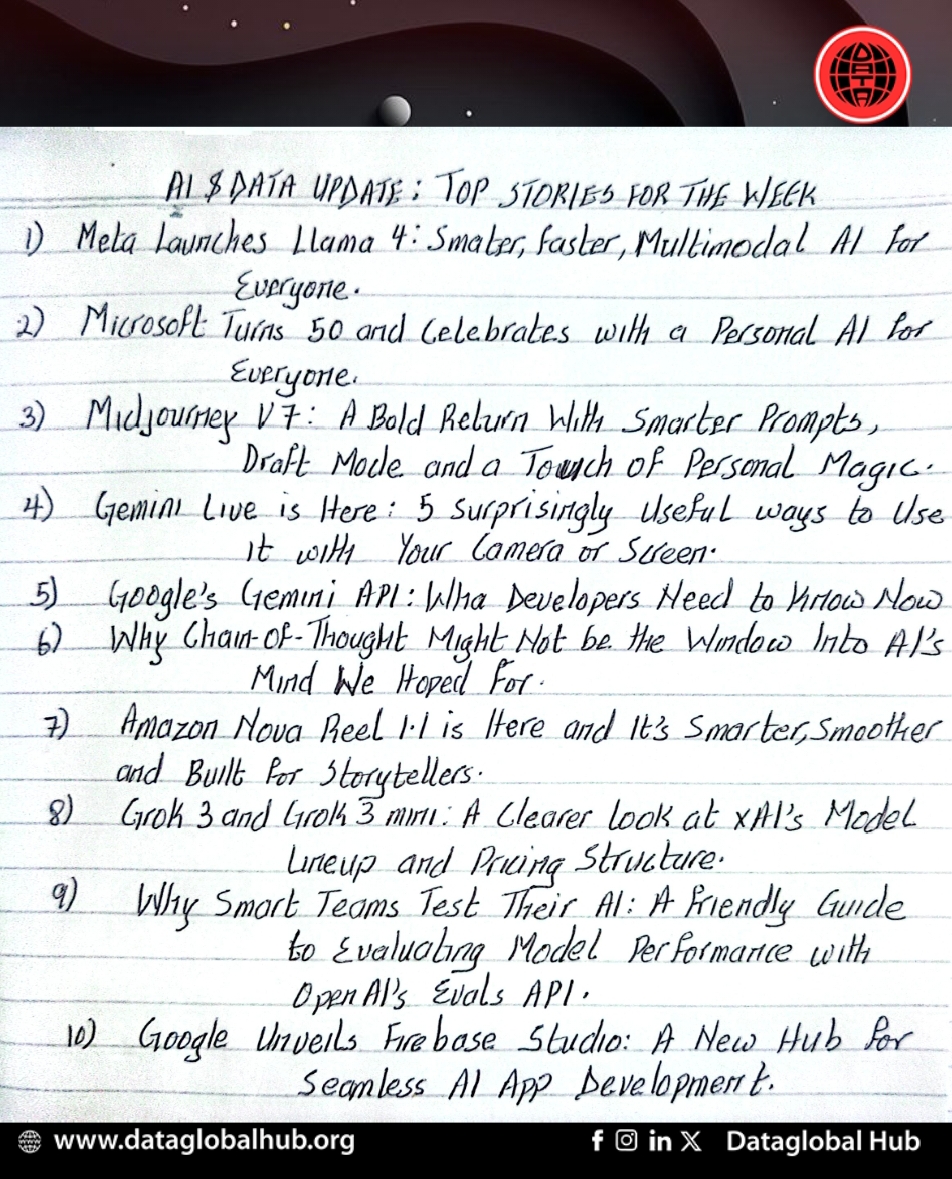 DATA
AI & DATA UPDATE: TOP STORIES FOR THE WEEK
1) Meta Launches Llama 4: Smater, faster, Multimodal AI for
Everyone.
2) Microsoft Turns 50 and Celebrates with a Personal AI for
Everyone.
3) Midjourney V7: A Bold Return With Smarter Prompts,
Draft Mode and a Touch of Personal Magic.
4) Gemini Live is Here: 5 Surprisingly Useful ways to Use
it with Your Camera or Screen.
5) Google's Gemini API: Wha Developers Need to Know Now
6) Why Chain-Of-Thought Might Not be the Window Into AI's
Mind We Hoped For.
7) Amazon Nova Reel 1.1 is Here and It's Smarter, Smoother
and Built for Storytellers.
8) Grok 3 and Grok 3 mini: A Clearer look at xAI's Model
Lineup and Pricing Structure.
9) Why Smart Teams Test Their AI: A friendly Guide
to Evaluating Model Performance with
OpenAI's Evals API.
10) Google Unveils Firebase Studio: A New Hub for
Seamless AI App Development.
www.dataglobalhub.org
Dataglobal Hub